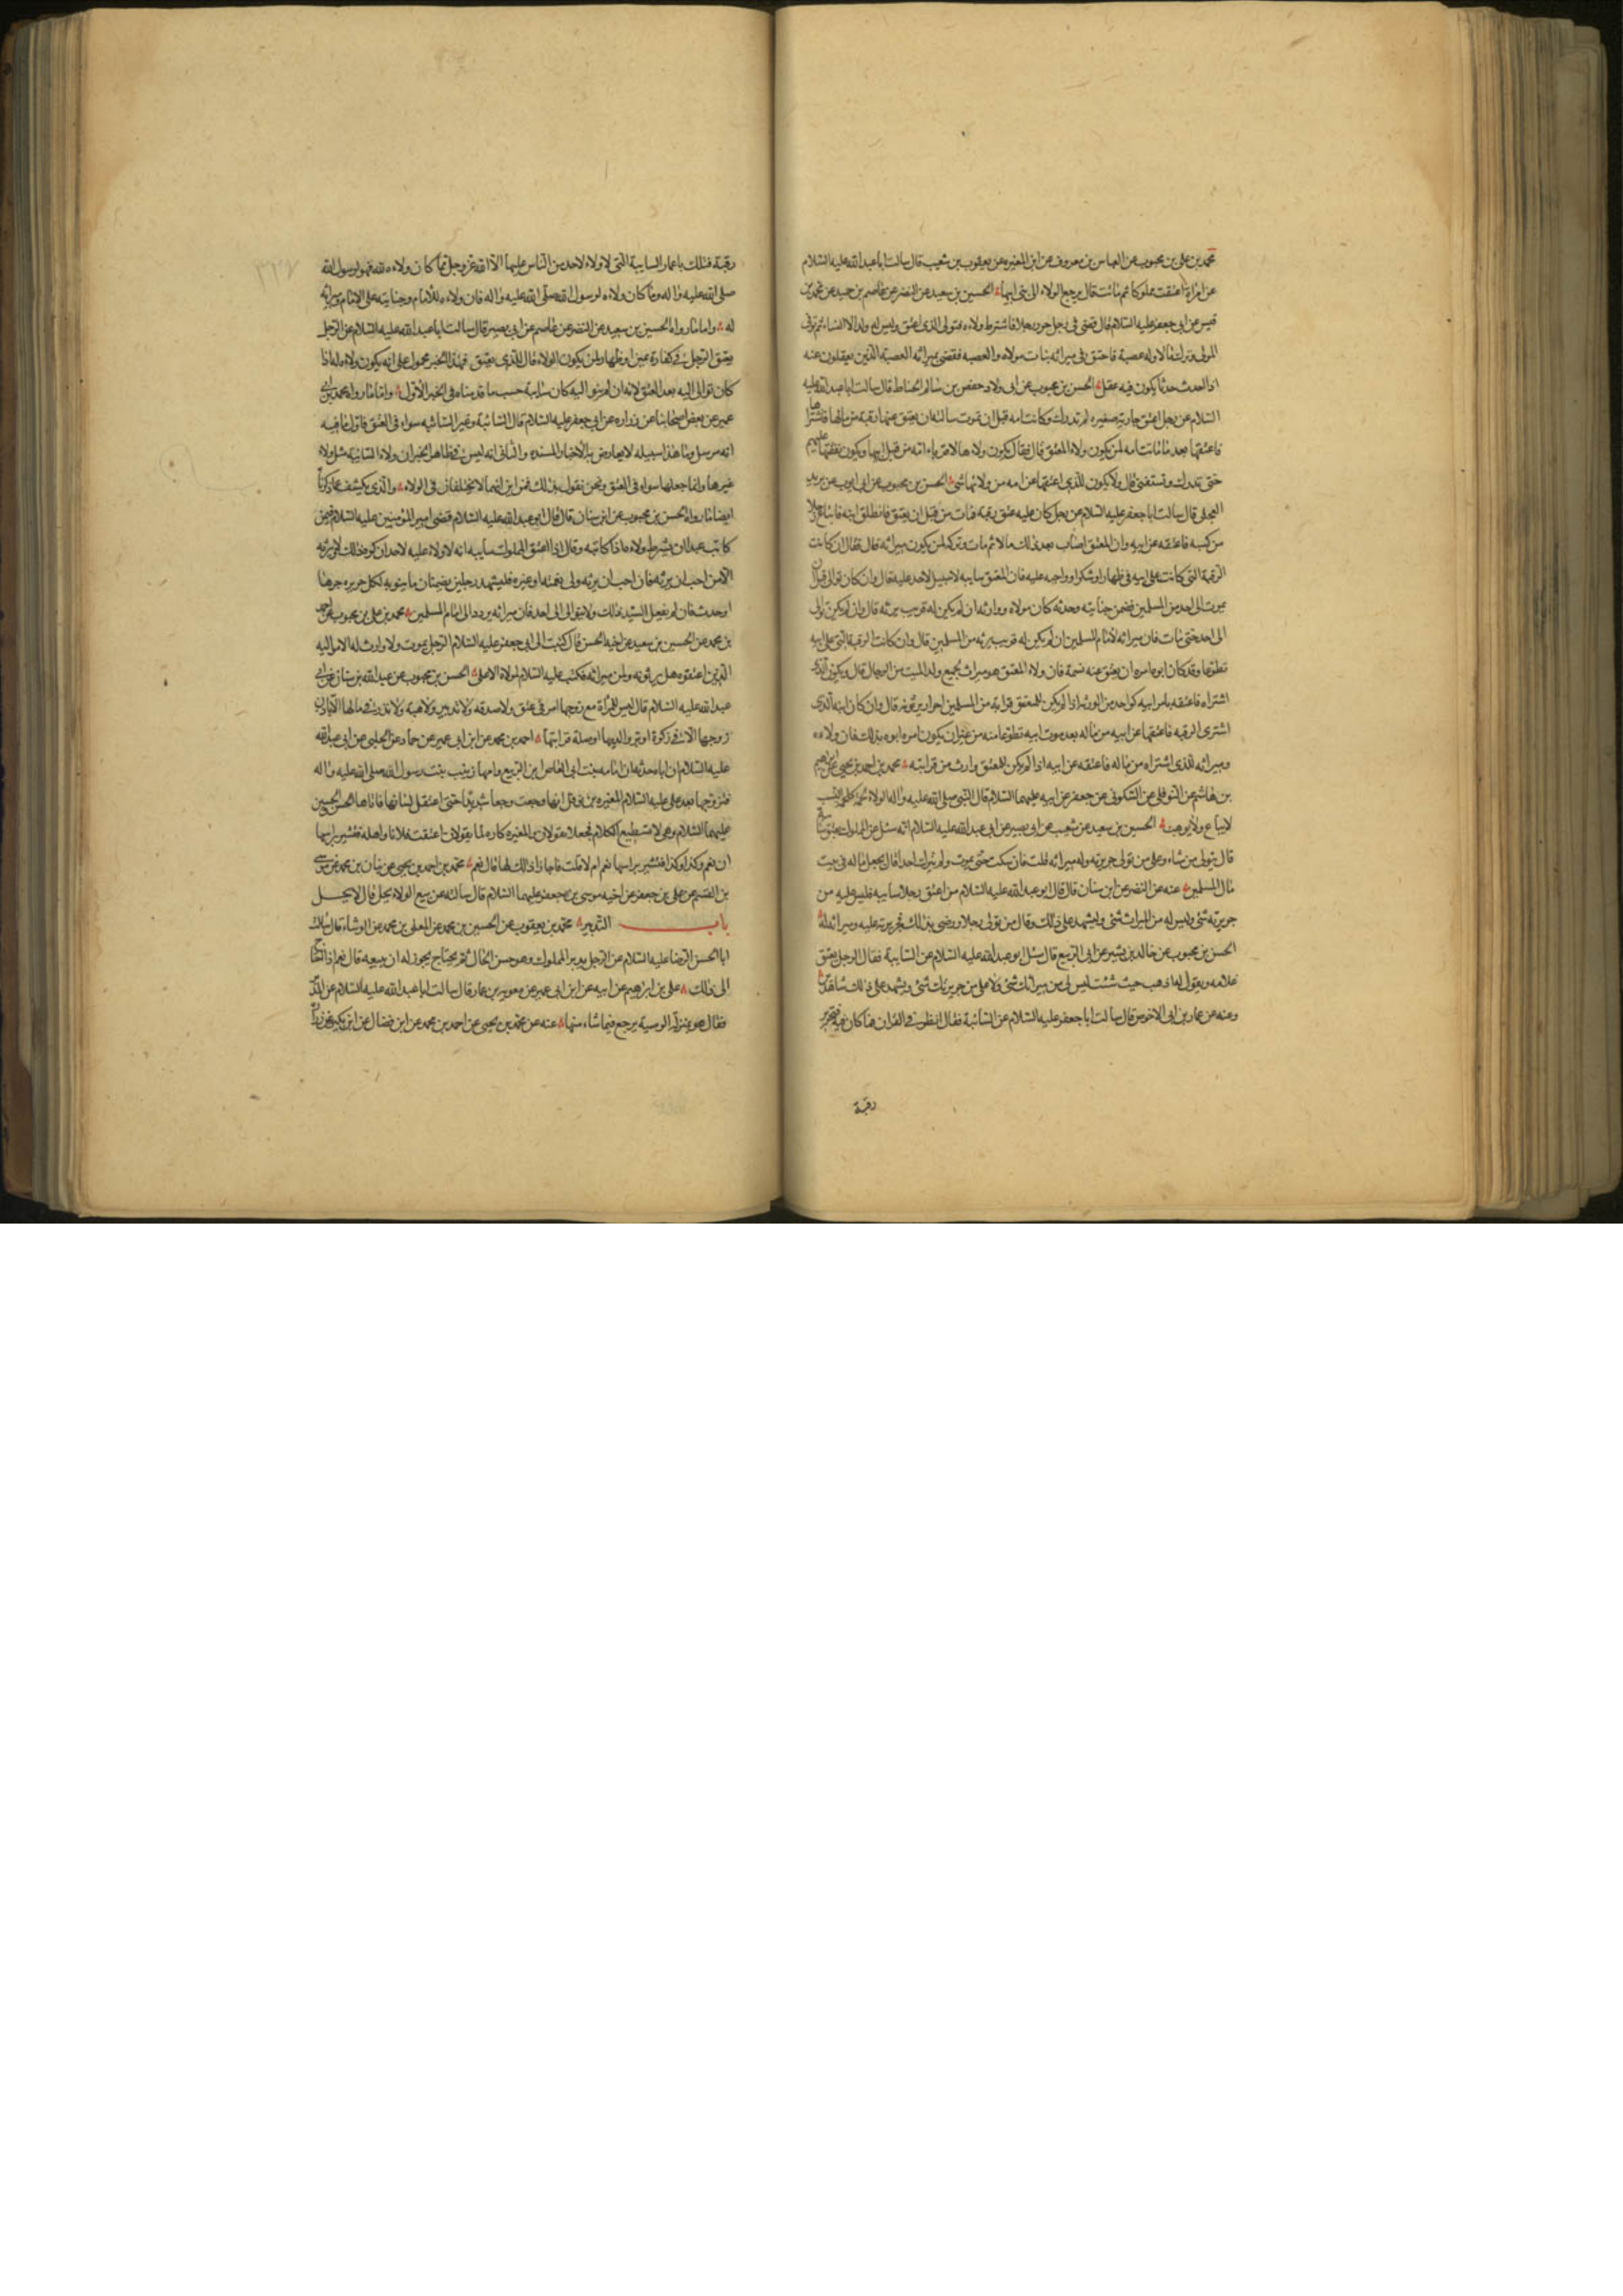 محمد بن علی بن محبوب عن العباس بن معروف عن ابن المغیره عن یعقوب بن شعیب قال سالت ابا عبد الله علیه السلام
عن امراة اعتقت مملوکا ثم ماتت قال یرجع الولاء الی بنی ابیها الحسین بن سعید عن النضر عن عاصم بن حمید عن محمد بن
قیس عن ابی جعفر علیه السلام قال قضی فی رجل حرر رجلا فاشترط ولاءه فتوفی الذی اعتق ولیس له ولد الا النساء ثم توفی
المولی وترک مالا وله عصبة فاحتق فی میراثه بنات مولاه والعصبه فقضی بمیراثه العصبة الذین یعقلون عنه
اذا احدث حدثا یکون فیه عقل الحسن بن محبوب عن ابی ولاد حفص بن سالم الحناط قال سالت ابا عبد الله علیه
السلام عن رجل اعتق جاریة صغیره لم تدرک وکانت امه قبل ان تموت سالته ان یعتق عنها رقبة من مالها فاشتراها
فاعتقها بعد ما ماتت امه لمن یکون ولاء المعتق قال فقال یکون ولاءها لاقرباء امه من قبل ابیها ویکون نفقتها علیهم
حتی تدرک وتستغنی قال ولا یکون للذی اعتقها عن امه من ولائها شئ الحسن بن محبوب عن ابی ایوب عن برید
العجلی قال سالت ابا جعفر علیه السلام عن رجل کان علیه عتق رقبة فمات من قبل ان یعتق فانطلق ابنه فابتاع رجلا
من کسبه فاعتقه عن ابیه وان المعتق اصاب بعد ذلک مالا ثم مات وترکه لمن یکون میراثه قال فقال ان کانت
الرقبة التی کانت علی ابیه فی ظهار او شکر او واجبه علیه فان المعتق سایبه لا سبیل لاحد علیه قال وان کان توالی قبل ان
یموت الی احد من المسلمین فضمن جنایته وحدثه کان مولاه ووارثه ان لم یکن له قریب یرثه قال وان لم یکن توالی
الی احد حتی مات فان میراثه لامام المسلمین ان لم یکن له قریب یرثه من المسلمین قال وان کانت الرقبة التی علی ابیه
تطوعا وقد کان ابوه امره ان یعتق عنه نسمة فان ولاء المعتق هو میراث لجمیع ولد المیت من الرجال قال ویکون الذی
اشتراه فاعتقه بامر ابیه کواحد من الورثه اذا لم یکن للمعتق قرابة من المسلمین احرار یرثونه قال وان کان ابنه الذی
اشتری الرقبه فاعتقها عن ابیه من ماله بعد موت ابیه تطوعا منه من غیر ان یکون امره ابوه بذلک فان ولاءه
ومیراثه للذی اشتراه من ماله فاعتقه عن ابیه اذا لم یکن للمعتق وارث من قرابته محمد بن احمد بن یحیی عن ابرهیم
بن هاشم عن النوفلی عن السکونی عن جعفر عن ابیه علیهما السلام قال قال النبی صلی الله علیه واله الولاء لحمة کلحمة النسب
لا یباع ولا یوهب الحسین بن سعید عن شعیب عن ابی بصیر عن ابی عبد الله علیه السلام انه سئل عن المملوک یعتق سائبة
قال یتولی من شاء وعلی من تولی جریرته وله میراثه قلت فان سکت حتی یموت ولم یتول احدا قال یجعل ماله فی بیت
مال المسلمین عنه عن النضر عن ابن سنان قال قال ابو عبد الله علیه السلام من اعتق رجلا سایبه فلیس علیه من
جریرته شئ ولیس له من المیراث شئ ولیشهد علی ذلک وقال من تولی رجلا ورضی بذلک فجریرته علیه ومیراثه له
الحسن بن محبوب عن خالد بن بشیر عن ابی الربیع قال سئل ابو عبد الله علیه السلام عن السایبة فقال الرجل یعتق
غلامه ویقول له اذهب حیث شئت لیس لی من میراثک شئ ولا علی من جریرتک شئ ویشهد علی ذلک شاهدین
وعنه عن عمار بن ابی الاخوص قال سالت ابا جعفر علیه السلام عن السائبة فقال انظروا فی القران فما کان فیه فتحریر
رقبة
رقبة فذلک یا عمار السایبة التی لا ولاء لاحد من الناس علیها الا الله عز وجل فما کان ولاءه لله فهو لرسول الله
صلی الله علیه واله وما کان ولاءه لرسول الله صلی الله علیه واله فان ولاءه للامام وجنایته علی الامام ومیراثه
له واما ما رواه الحسین بن سعید عن النضر عن عاصم عن ابی بصیر قال سالت ابا عبد الله علیه السلام عن الرجل
یعتق الرجل فی کفارة یمین او ظهار لمن یکون الولاء قال للذی یعتق فهذا الخبر محمول علی انه یکون ولاءه له اذا
کان توالی الیه بعد العتق لانه ان لم یتوال الیه کان سایبة حسب ما قدمناه فی الخبر الاول واما ما رواه محمد بن ابی
عمیر عن بعض اصحابنا عن زراره عن ابی جعفر علیه السلام قال السائبة وغیر السائبه سواء فی العتق فاول ما فیه
انه مرسل وما هذا سبیله لا یعارض به الاخبار المسنده والثانی انه لیس فی ظاهر الخبر ان ولاء السائبة مثل ولاء
غیرها وانما جعلها سواء فی العتق ونحن نقول بذلک فمن این انهما لا یختلفان فی الولاء والذی یکشف عما ذکرناه
ایضا ما رواه الحسن بن محبوب عن ابن سنان قال قال ابو عبد الله علیه السلام قضی امیر المؤمنین علیه السلام فیمن
کاتب عبدا ان یشترط ولاءه اذا کاتبه وقال اذا اعتق المملوک سایبه انه لا ولاء علیه لاحد ان کره ذلک لا یرثه
الا من احب ان یرثه فان احب ان یرثه ولی نعمته او غیره فلیشهد رجلین بضمان ما ینوبه لکل جریره جرها
او حدث فان لم یفعل السید ذلک ولا یتوالی الی احد فان میراثه یرد الی امام المسلمین محمد بن علی بن محبوب عن احمد
بن محمد عن الحسین بن سعید عن اخیه الحسن قال کتبت الی ابی جعفر علیه السلام الرجل یموت ولا وارث له الا موالیه
الذین اعتقوه هل یرثونه ولمن میراثه فکتب علیه السلام لمولاه الاعلی الحسن بن محبوب عن عبد الله بن سنان عن ابی
عبد الله علیه السلام قال لیس للمراة مع زوجها امر فی عتق ولا صدقه ولا تدبیر ولا هبة ولا نذر فی مالها الا باذن
زوجها الا فی زکوة او بر والدیها او صلة قرابتها احمد بن محمد عن ابن ابی عمیر عن حماد عن الحلبی عن ابی عبد الله
علیه السلام ان اباه حدثه ان امامه بنت ابی العاص ابن الربیع وامها زینب بنت رسول الله صلی الله علیه واله
فتزوجها بعد علی علیه السلام المغیره بن نوفل انها وجعت وجعا شدیدا حتی اعتقل لسانها فاتاها الحسن والحسین
علیهما السلام وهی لا تستطیع الکلام فجعلا یقولان والمغیره کاره لما یقولان اعتقت فلانا واهله فتشیر براسها
ان نعم وکذا وکذا فتشیر براسها نعم ام لا قلت فاجازا ذلک لها قال نعم محمد بن احمد بن یحیی عن بنان بن محمد عن موسی
بن القسم عن علی بن جعفر عن اخیه موسی بن جعفر علیهما السلام قال سالته عن بیع الولاء یحل قال لا یحل
باب التدبیر محمد بن یعقوب عن الحسین بن محمد عن المعلی بن محمد عن الوشاء قال سالت
ابا الحسن الرضا علیه السلام عن الرجل یدبر المملوک وهو حسن الحال ثم یحتاج یجوز له ان یبیعه قال نعم اذا احتاج
الی ذلک علی بن ابرهیم عن ابیه عن ابن ابی عمیر عن معویه بن عمار قال سالت ابا عبد الله علیه السلام عن المدبر
فقال هو بمنزلة الوصیة یرجع فیما شاء منها عنه عن محمد بن یحیی عن احمد بن محمد عن ابن فضال عن ابن بکیر عن زراره